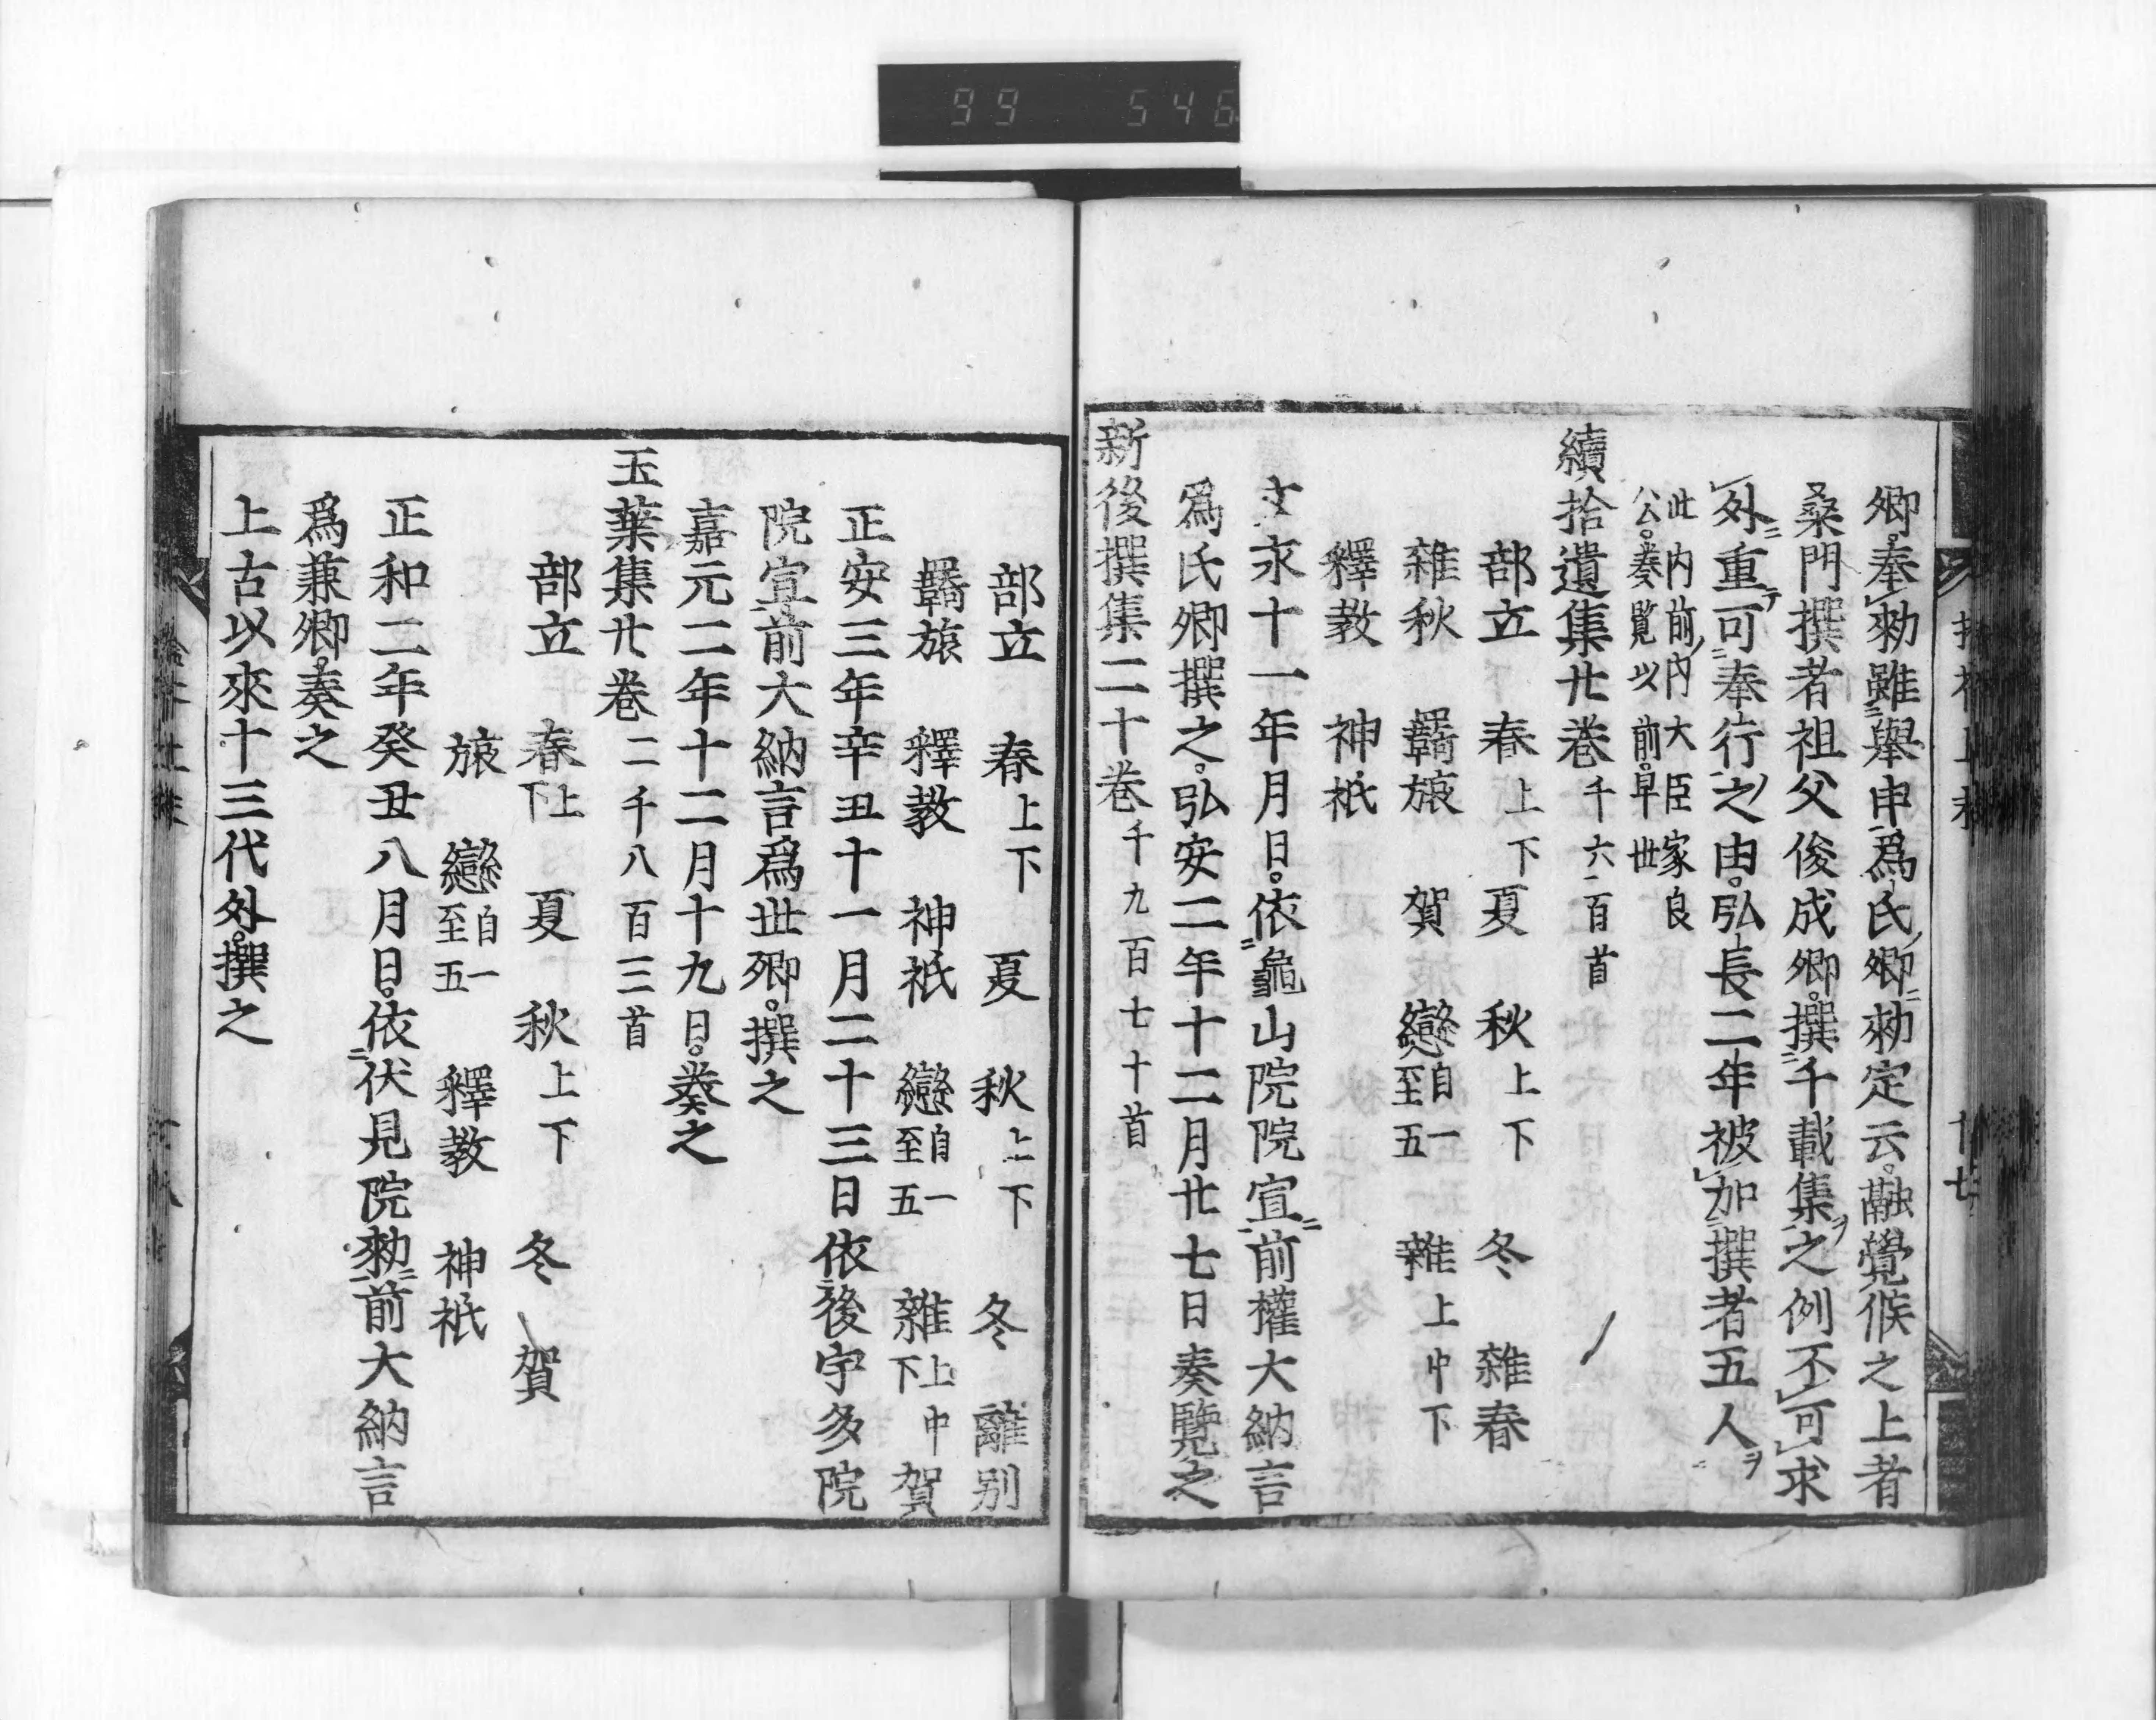 99 546
卿奉勅雖擧申爲氏卿勅定云融覺候之上者
桑門撰者祖父俊成卿撰千載集ヲ之例不可求
外ニ重テ可奉行之由弘長二年被加撰者五人ヲ
此内前内大臣家良
公奏覽以前早世
續拾遺集廿卷千六百首
部立 春上下 夏 秋上下 冬 雜春
雜秋 羈旅 賀 戀自一至五 雜上中下
釋教 神祇
文永十一年月日依龜山院院宣前權大納言
爲氏卿撰之弘安二年十二月廿七日奏覽之
新後撰集二十卷千九百七十首
廿七
部立 春上下 夏 秋上下 冬 離別
羈旅 釋教 神祇 戀自一至五 雜上中下 賀
正安三年辛丑十一月二十三日依後宇多院
院宣前大納言爲世卿撰之
嘉元二年十二月十九日奏之
玉葉集廿卷二千八百三首
部立 春上下 夏 秋上下 冬 賀
旅 戀自一至五 釋教 神祇
正和二年癸丑八月日依伏見院勅前大納言
爲兼卿奏之
上古以來十三代外撰之